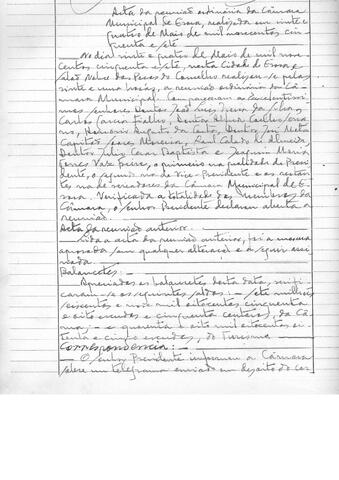 Acta da reunião ordinária da Câmara
Municipal de Evora, realizada em vinte e
quatro de Maio de mil novecentos cin-
quenta e sete
No dia vinte e quatro de Maio de mil nove
centos cinquenta e sete, nesta Cidade de Evora e
nos Paços do Concelho realizou-se pelas
vinte e uma horas, a reunião ordinária da Câ-
mara Municipal. Compareceram os Excelentissi-
mos senhores Doutor da Silva,
Carlos Filho, Doutor
Augusto da Costa, Doutor José
Capitão de Almeida,
Doutor Julio Baptista e Joaquim Maria
Vaz Freire, o primeiro na qualidade de Presi-
dente, o segundo na de Vice-Presidente e os restan-
tes na de vereadores da Câmara Municipal de E-
vora. Verificada a totalidade dos membros da
Câmara, o senhor Presidente declarou aberta a
reunião.
Acta da reunião anterior: —
Lida a acta da reunião anterior, foi a mesma
aprovada sem qualquer alteração e a seguir assi-
nada.
Balancetes: —
Apreciados os balancetes desta data, verifi-
caram-se os seguintes saldos: — sete milhões
seiscentos e nove mil oitocentos cinquenta
e oito escudos e cinquenta centavos, da Câ-
mara; — e quarenta e oito mil oitocentos se-
tenta e cinco escudos, do Turismo —
Correspondencia: —
— O senhor Presidente informou a Câmara
sobre um telegrama enviado em